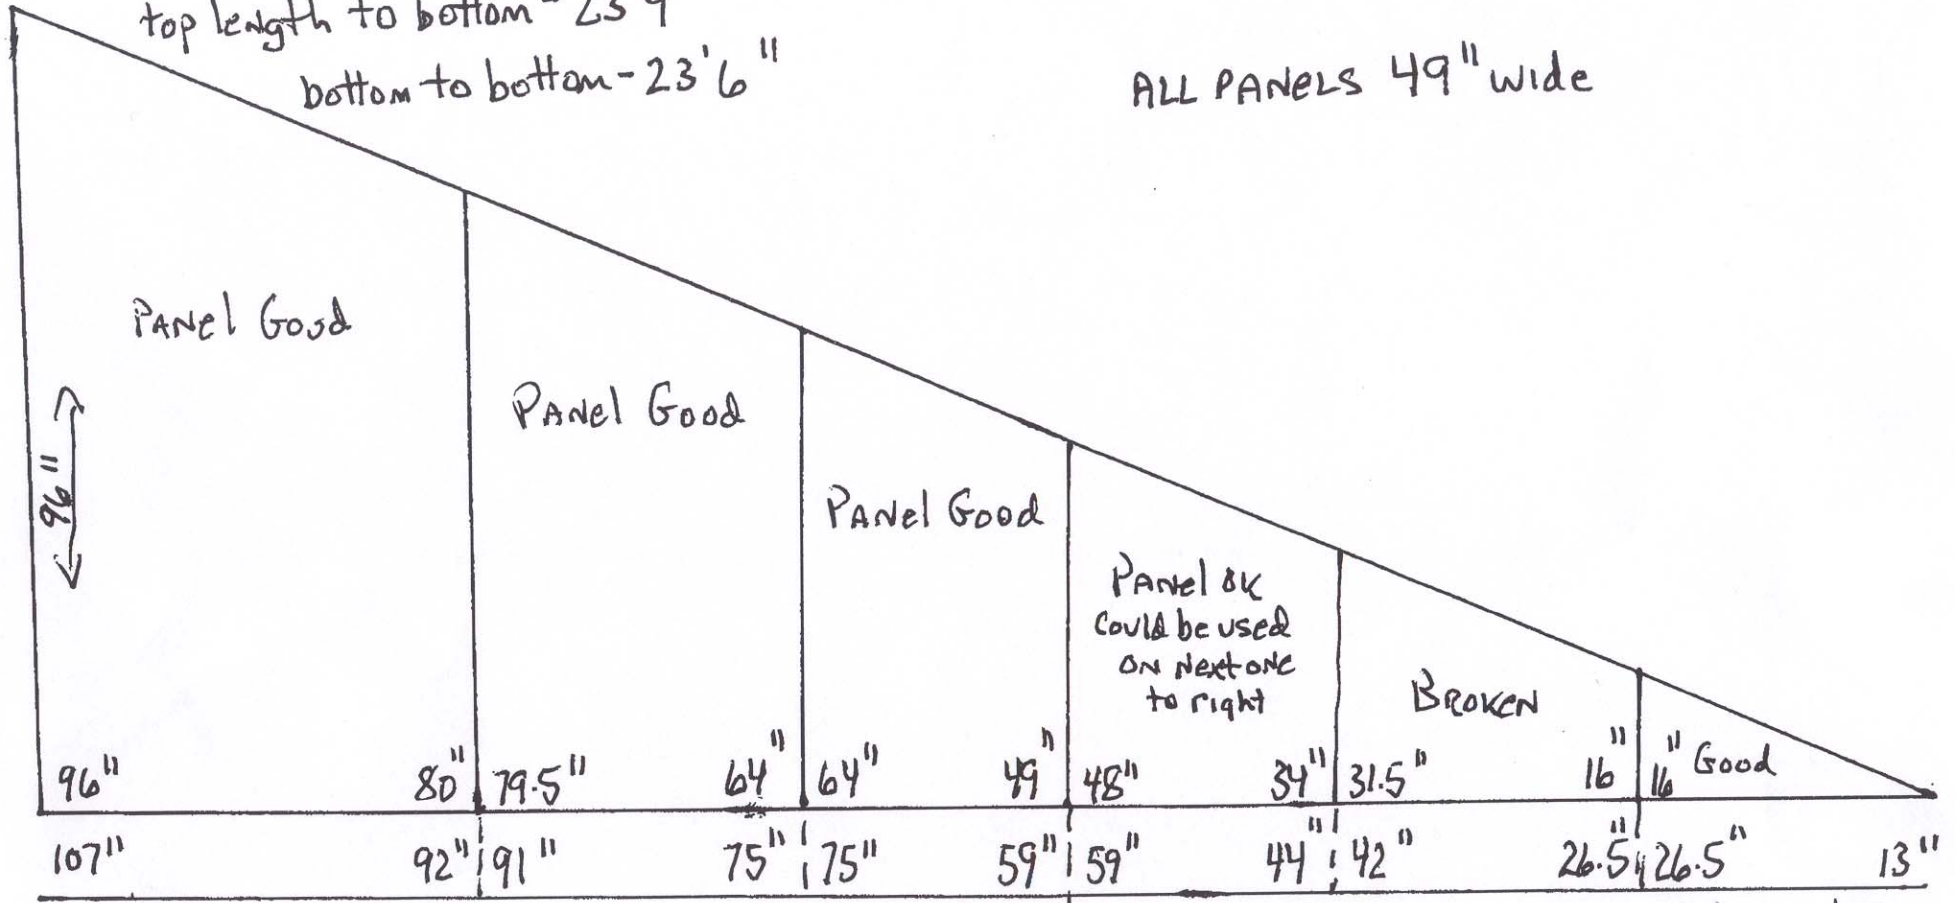 top length to bottom - 23'9
bottom to bottom - 23'6"
ALL PANELS 49" wide
PANel Good
PANel Good
PANel Good
PANel OK
could be used
ON Next ONe
to right
BROKEN
Good
96"
96" 80" 79.5" 64" 64" 49" 48" 34" 31.5" 16" 16"
107" 92" 91" 75" 75" 59" 59" 44" 42" 26.5" 26.5" 13"